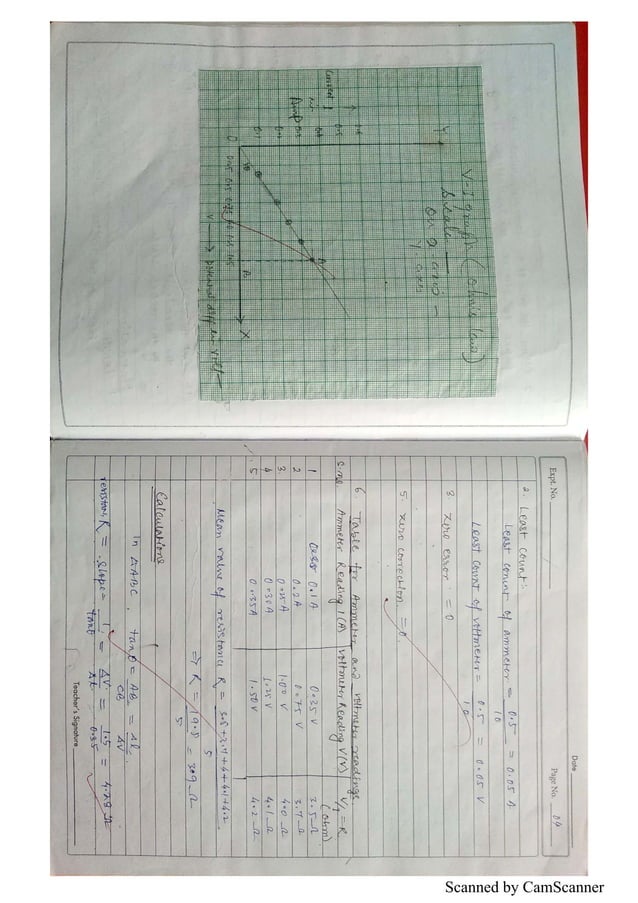 V-I graph (ohm's law)
Scale
on x-axis -
Y-axis
Y
Current I
in
Amp
0.1
O
X
A
B
V → potential diff in volt
Expt. No.
Date
Page No. 04
2. Least count:
Least count of ammeter = 0.5/10 = 0.05 A
Least count of voltmeter = 0.5/10 = 0.05 V
3. Zero error = 0
5. Zero correction = 0
6. Table for Ammeter and voltmeter readings.
S.no. Ammeter Reading I (A) Voltmeter Reading V (V) V/I = R (ohm)
1 0.1 A 0.35 V 3.5 Ω
2 0.2 A 0.75 V 3.7 Ω
3 0.25 A 1.00 V 4.0 Ω
4 0.30 A 1.25 V 4.1 Ω
5 0.35 A 1.50 V 4.2 Ω
Mean value of resistance R = 3.5+3.7+4+4.1+4.2/5
⇒ R = 19.5/5 = 3.9 Ω
Calculations
In ΔABC, tanθ = AB/CB = ΔI/ΔV
resistance R = slope = 1/tanθ = ΔV/ΔI = 1.5/0.35 = 4.28 Ω
Teacher's Signature
Scanned by CamScanner